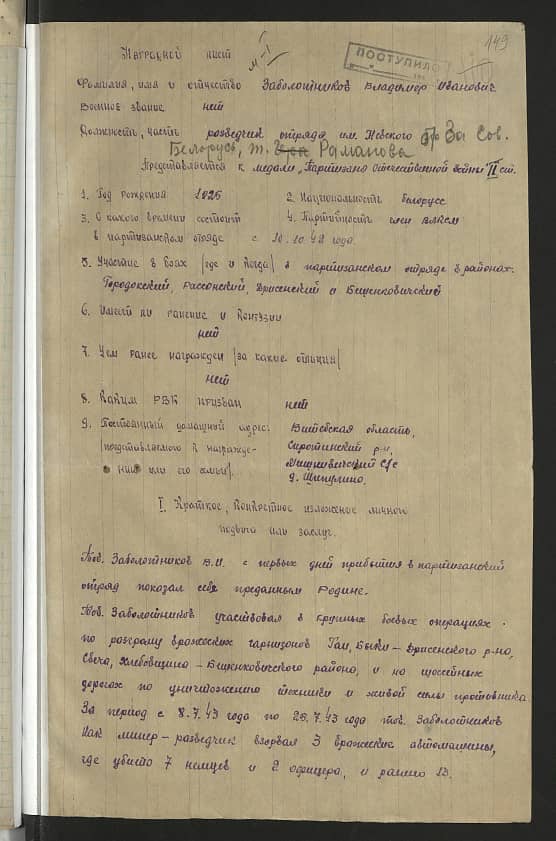 149
Наградной лист
ПОСТУПИЛО
Фамилия, имя и отчество Заболотников Владимир Иванович
Военное звание нет
Должность, часть разведчик отряда им. Невского бр За Сов.
Белорусь, т. Романова
Представляется к медали „Партизана Отечественной войны" II ст.
1. Год рождения 1926 2. Национальность белорусс
3. С какого времени состоит 4. Партийность член ВЛКСМ
в партизанском отряде с 10.10.42 года.
5. Участие в боях /где и когда/ в партизанском отряде в районах:
Городокский, Россонский, Дрисенский и Бешенковичский
6. Имеет ли ранение и контузии
нет
7. Чем ранее награжден /за какие отличия/
нет
8. Каким РВК призван нет
9. Постоянный домашний адрес: Витебская область,
/представляемого к награжде- Сиротинский р-н,
нию или его семьи/. С/С
д. Шипулино.
I. Краткое, конкретное изложение личного
подвига или заслуг.
Тов. Заболотников В.И. с первых дней прибытия в партизанский
отряд показал себя преданным Родине.
Тов. Заболотников участвовал в крупных боевых операциях
по разгрому вражеских гарнизонов Быки – Дрисенского р-на,
Свеча, Хлебовщино – Бешенковичского района, и на шоссейных
дорогах по уничтожению техники и живой силы противника.
За период с 8.7.43 года по 26.7.43 года тов. Заболотников
как минер – разведчик взорвал 3 вражеские автомашины,
где убито 7 немцев и 2 офицера, и ранено 13.